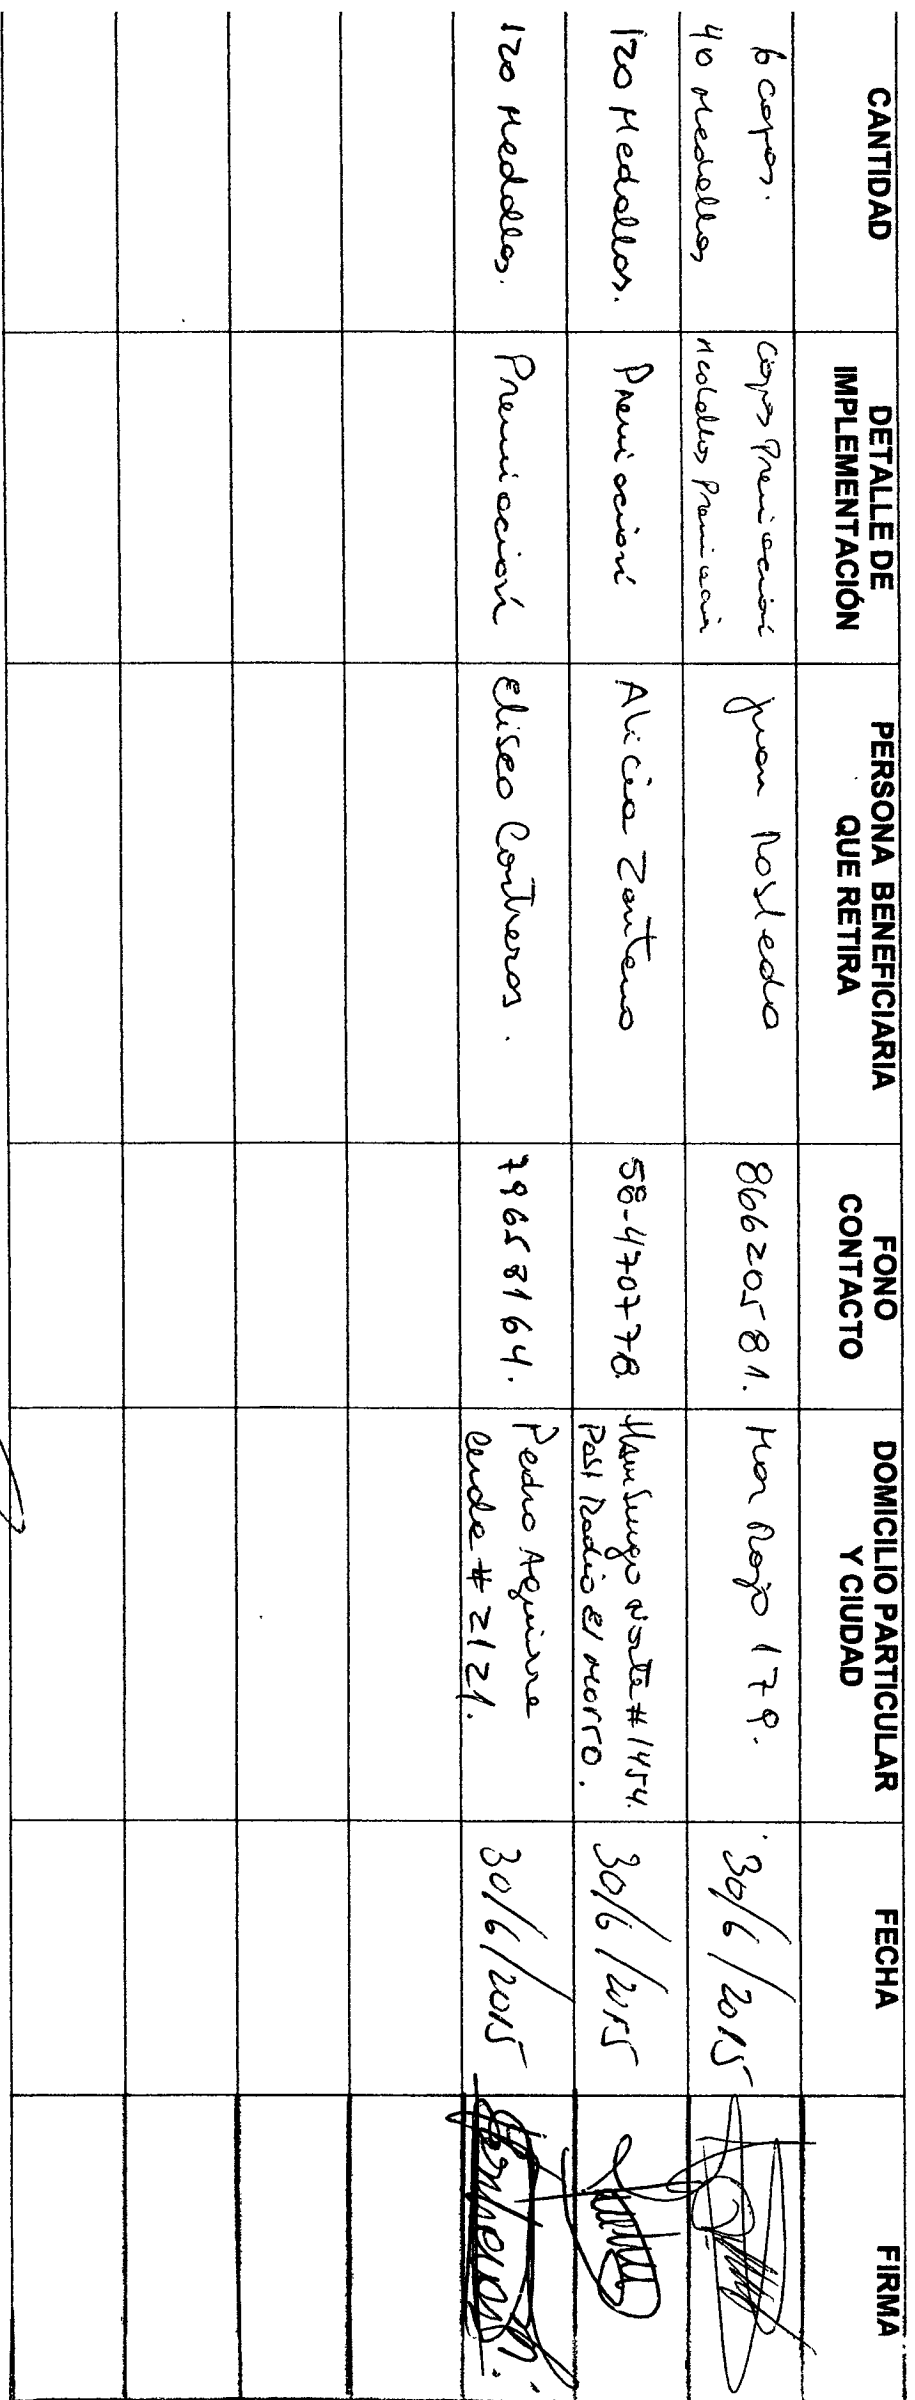 CANTIDAD
DETALLE DE
IMPLEMENTACIÓN
PERSONA BENEFICIARIA
QUE RETIRA
FONO
CONTACTO
DOMICILIO PARTICULAR
Y CIUDAD
FECHA
FIRMA
6 copas.
40 Medallas
Copas Premiación
Medallas Premiación
Juan Robledo
86620581.
Mar Rojo 179.
30/6/2015
120 Medallas.
Premiación
Alicia Zenteno
58-470778
Norte #1454.
Pobl Radio El Morro.
30/6/2015
120 Medallas.
Premiación
Eliseo Contreras.
79658164.
Pedro Aguirre
Cerda #2121.
30/6/2015